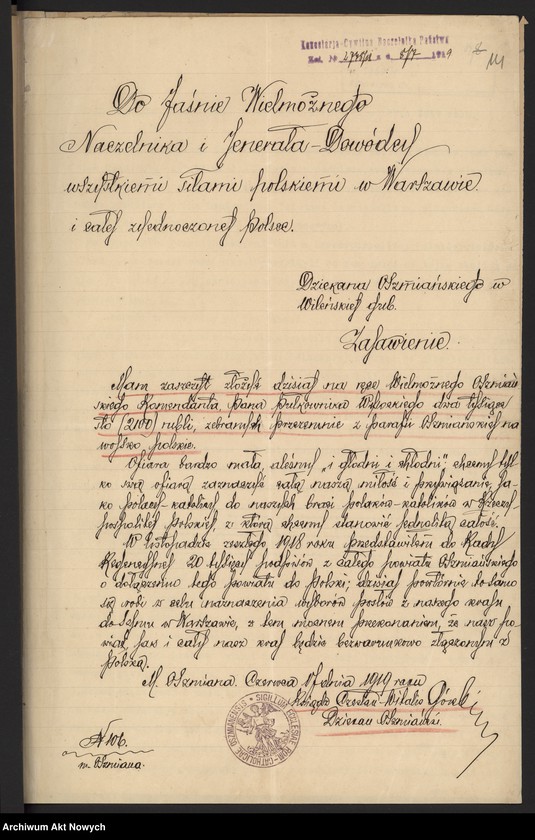 Kancelarja Cywilna Naczelnika Państwa
1919
111
Do Jaśnie Wielmożnego
Naczelnika i Jenerała-Dowódcy
wszystkiemi siłami polskiemi w Warszawie
i całej zjednoczonej Polsce.
Dziekana Oszmiańskiego w
Wileńskiej gub.
Zajawienie.
Mam zaszczyt złożyć dzisiaj na ręce Wielmożnego Oszmiań
skiego Komendanta, Pana Pułkownika dwa tysiące
sto (2100) rubli, zebranych przezemnie z parafii Oszmiańskiej na
wojsko polskie.
Ofiara bardzo mała, aleśmy "i głodni i chłodni"; chcemy tyl
ko swą ofiarą zaznaczyć całą naszą miłość i przywiązanie, ja
ko polacy-katolicy do naszych braci polaków-katolików w Rzeczy
pospolitej Polskiej, z którą chcemy stanowić jednolitą całość.
W listopadzie zeszłego 1918 roku przedstawiłem do Rady
Regencyjnej 20 tysięcy podpisów z całego powiatu Oszmiańskiego
o dołączeniu tego powiatu do Polski; dzisiaj powtórnie to samo
się robi w celu naznaczenia wyborów posłów z naszego kraju
do Sejmu w Warszawie, z tem mocnem przekonaniem, że nasz po-
wiat, jak i cały nasz kraj będzie bezwarunkowo złączonym z
Polską.
M. Oszmiana. Czerwca 17 dnia 1919 roku
Ksiądz Czesław-Witalis
Dziekan Oszmiański.
SIGILLUM ECCLESIAE ROM.-CATHOLICAE OSZMIANENSIS
N 106.
m. Oszmiana.
Archiwum Akt Nowych